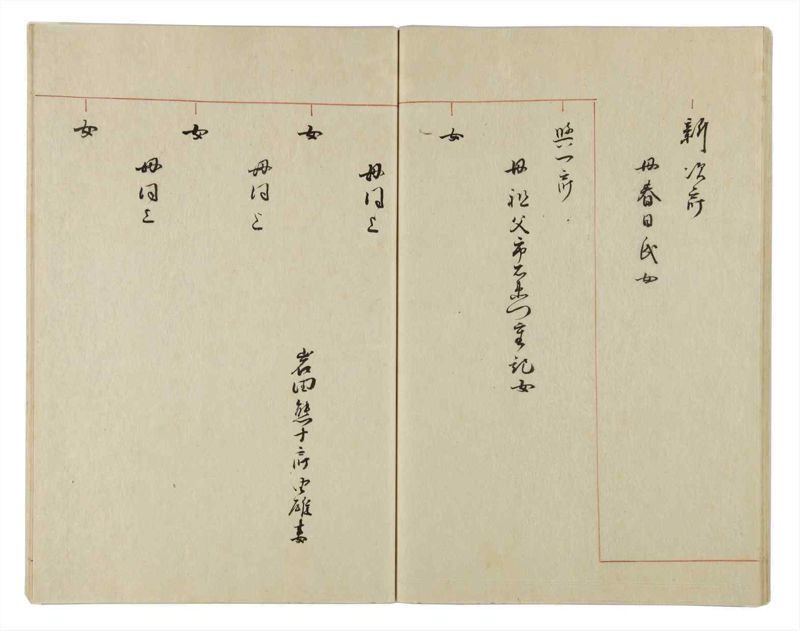 新次郎
母春日氏女
與一郎
母祖父市右衛門重記女
女
母同上
女
岩田熊十郎雄妻
母同上
女
母同上
女